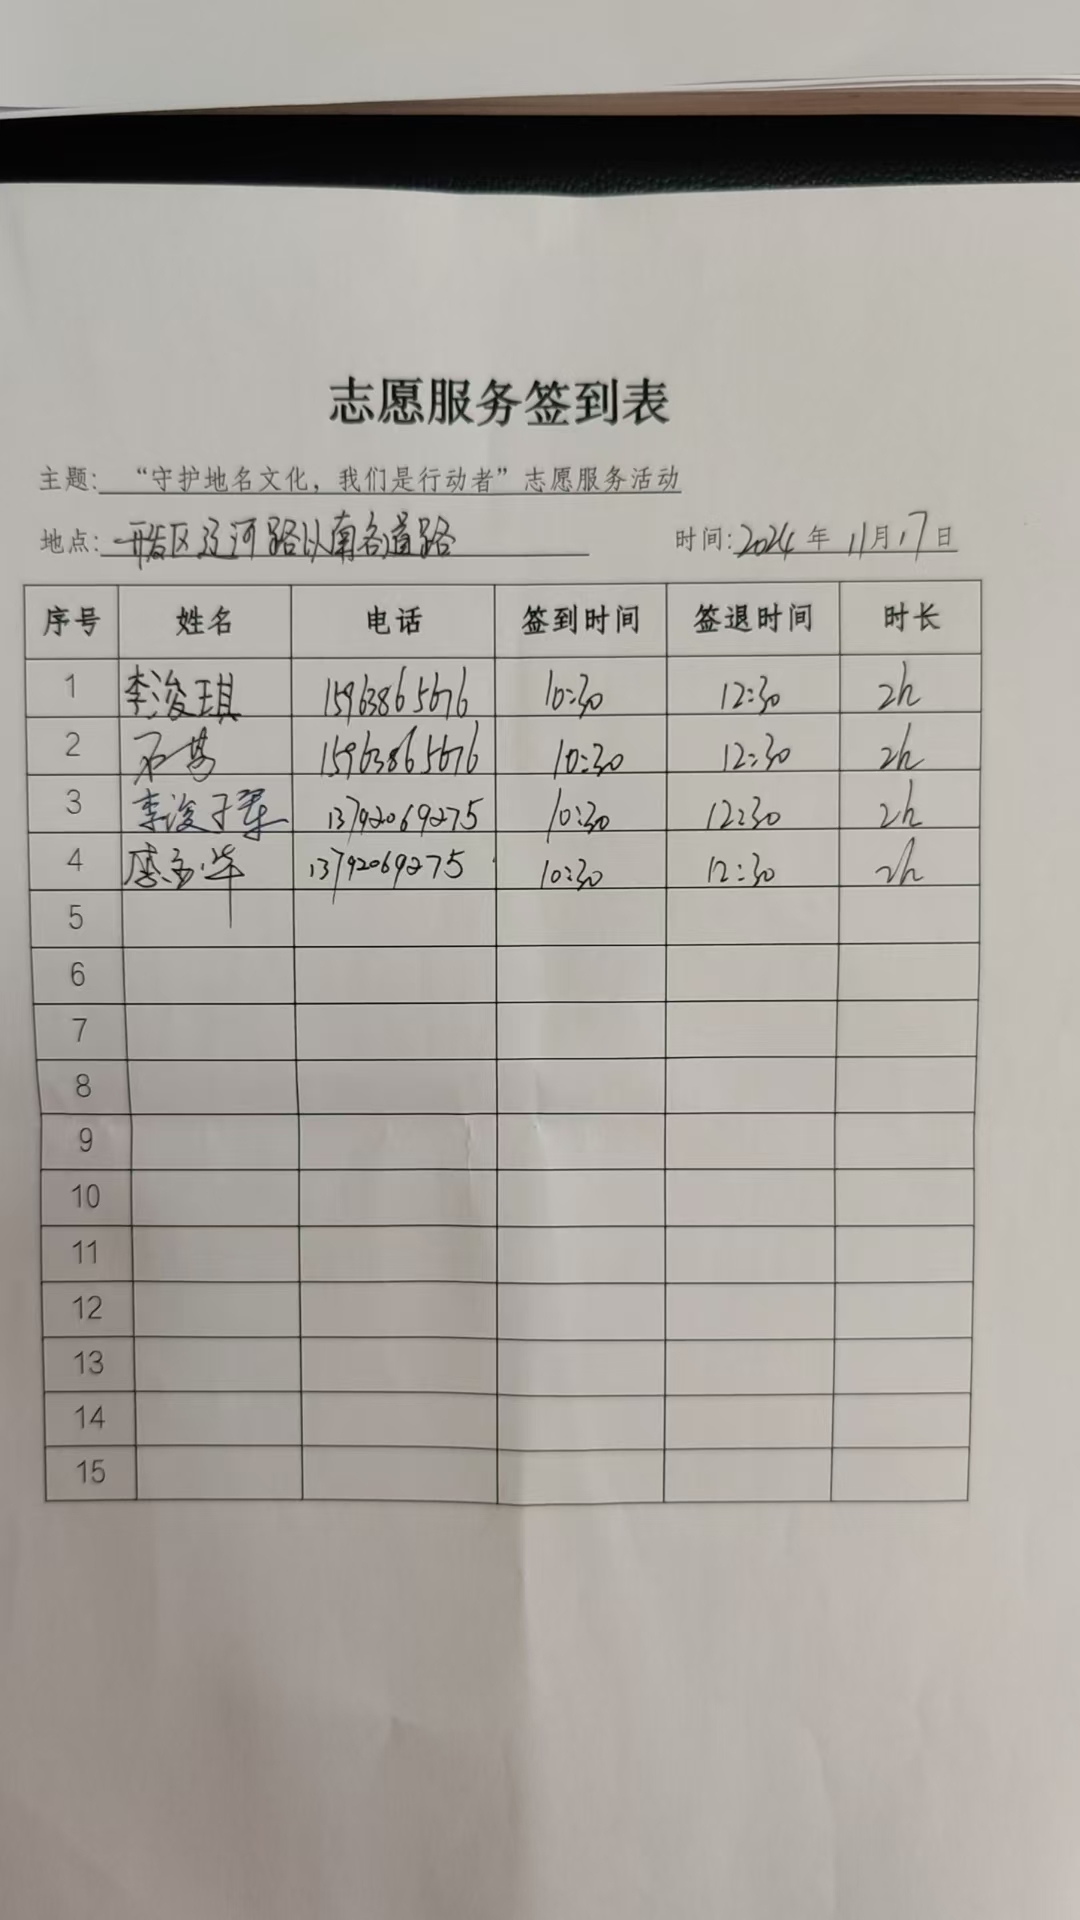 志愿服务签到表
主题: “守护地名文化，我们是行动者”志愿服务活动
地点: 开发区辽河路以南各道路 时间: 2024年 11月17日
序号 姓名 电话 签到时间 签退时间 时长
1 李浚琪 15963865676 10:30 12:30 2h
2 15963865676 10:30 12:30 2h
3 13792069275 10:30 12:30 2h
4 13792069275 10:30 12:30 2h
5
6
7
8
9
10
11
12
13
14
15